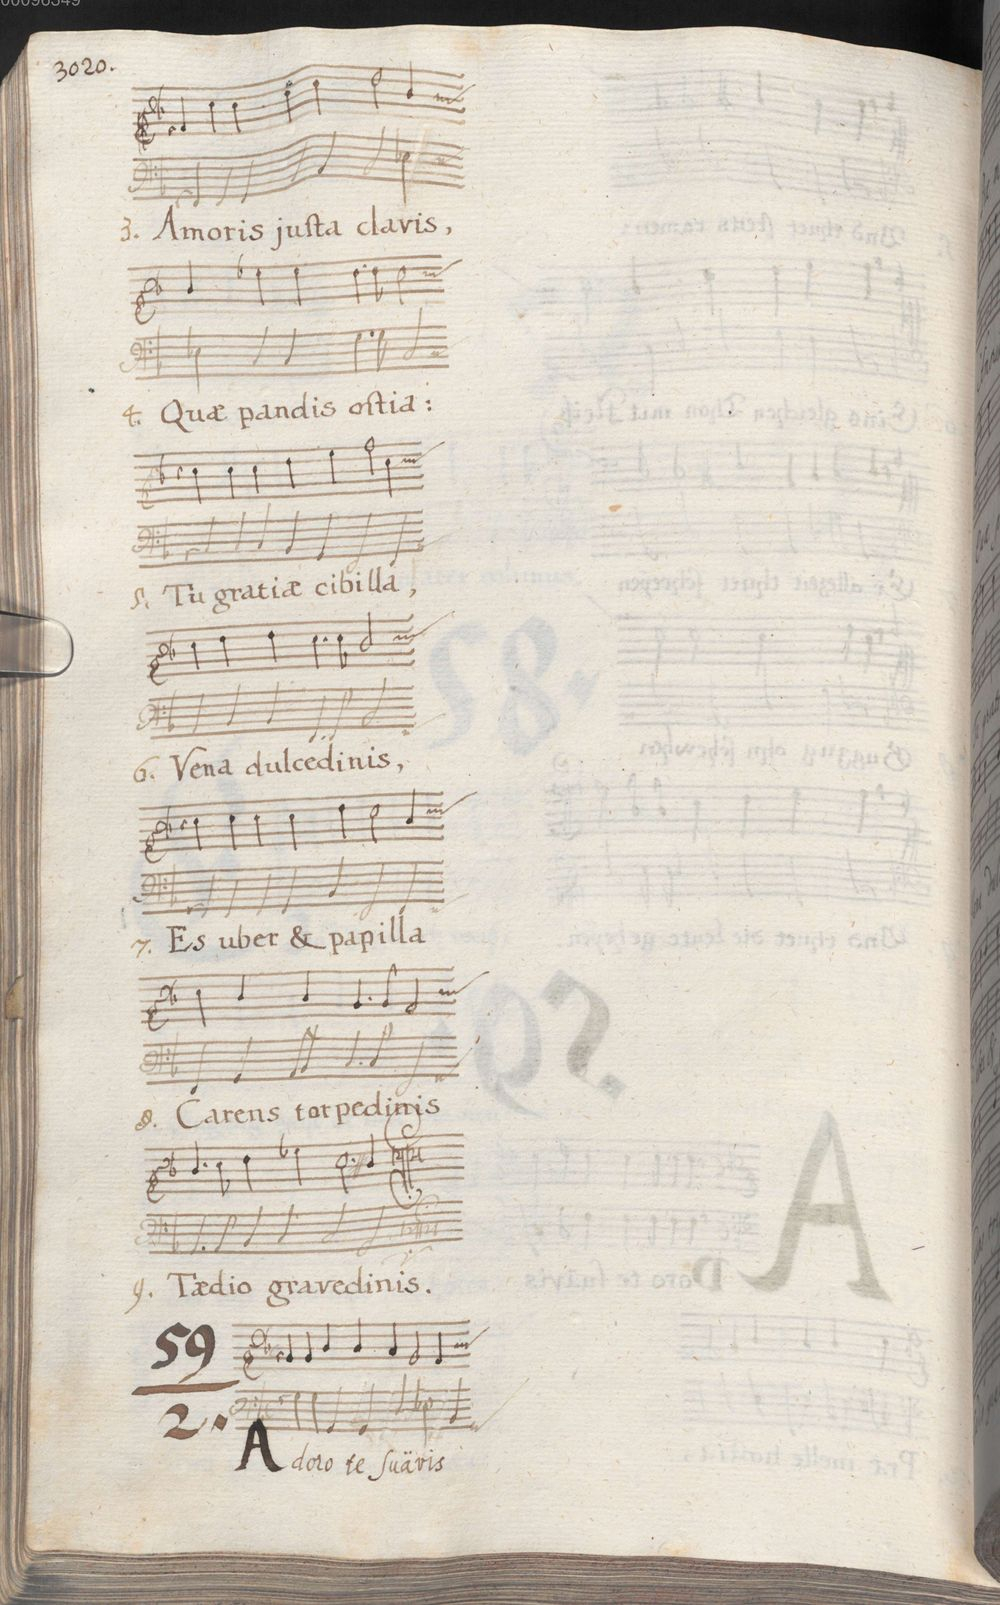 3020.
3. Amoris juſta clavis,
4. Quæ pandis oſtia:
5. Tu gratiæ cibilla,
6. Vena dulcedinis,
7. Es uber & papilla
8. Carens torpedinis
9. Tædio gravedinis.
59
2.
Adoro te ſuävis